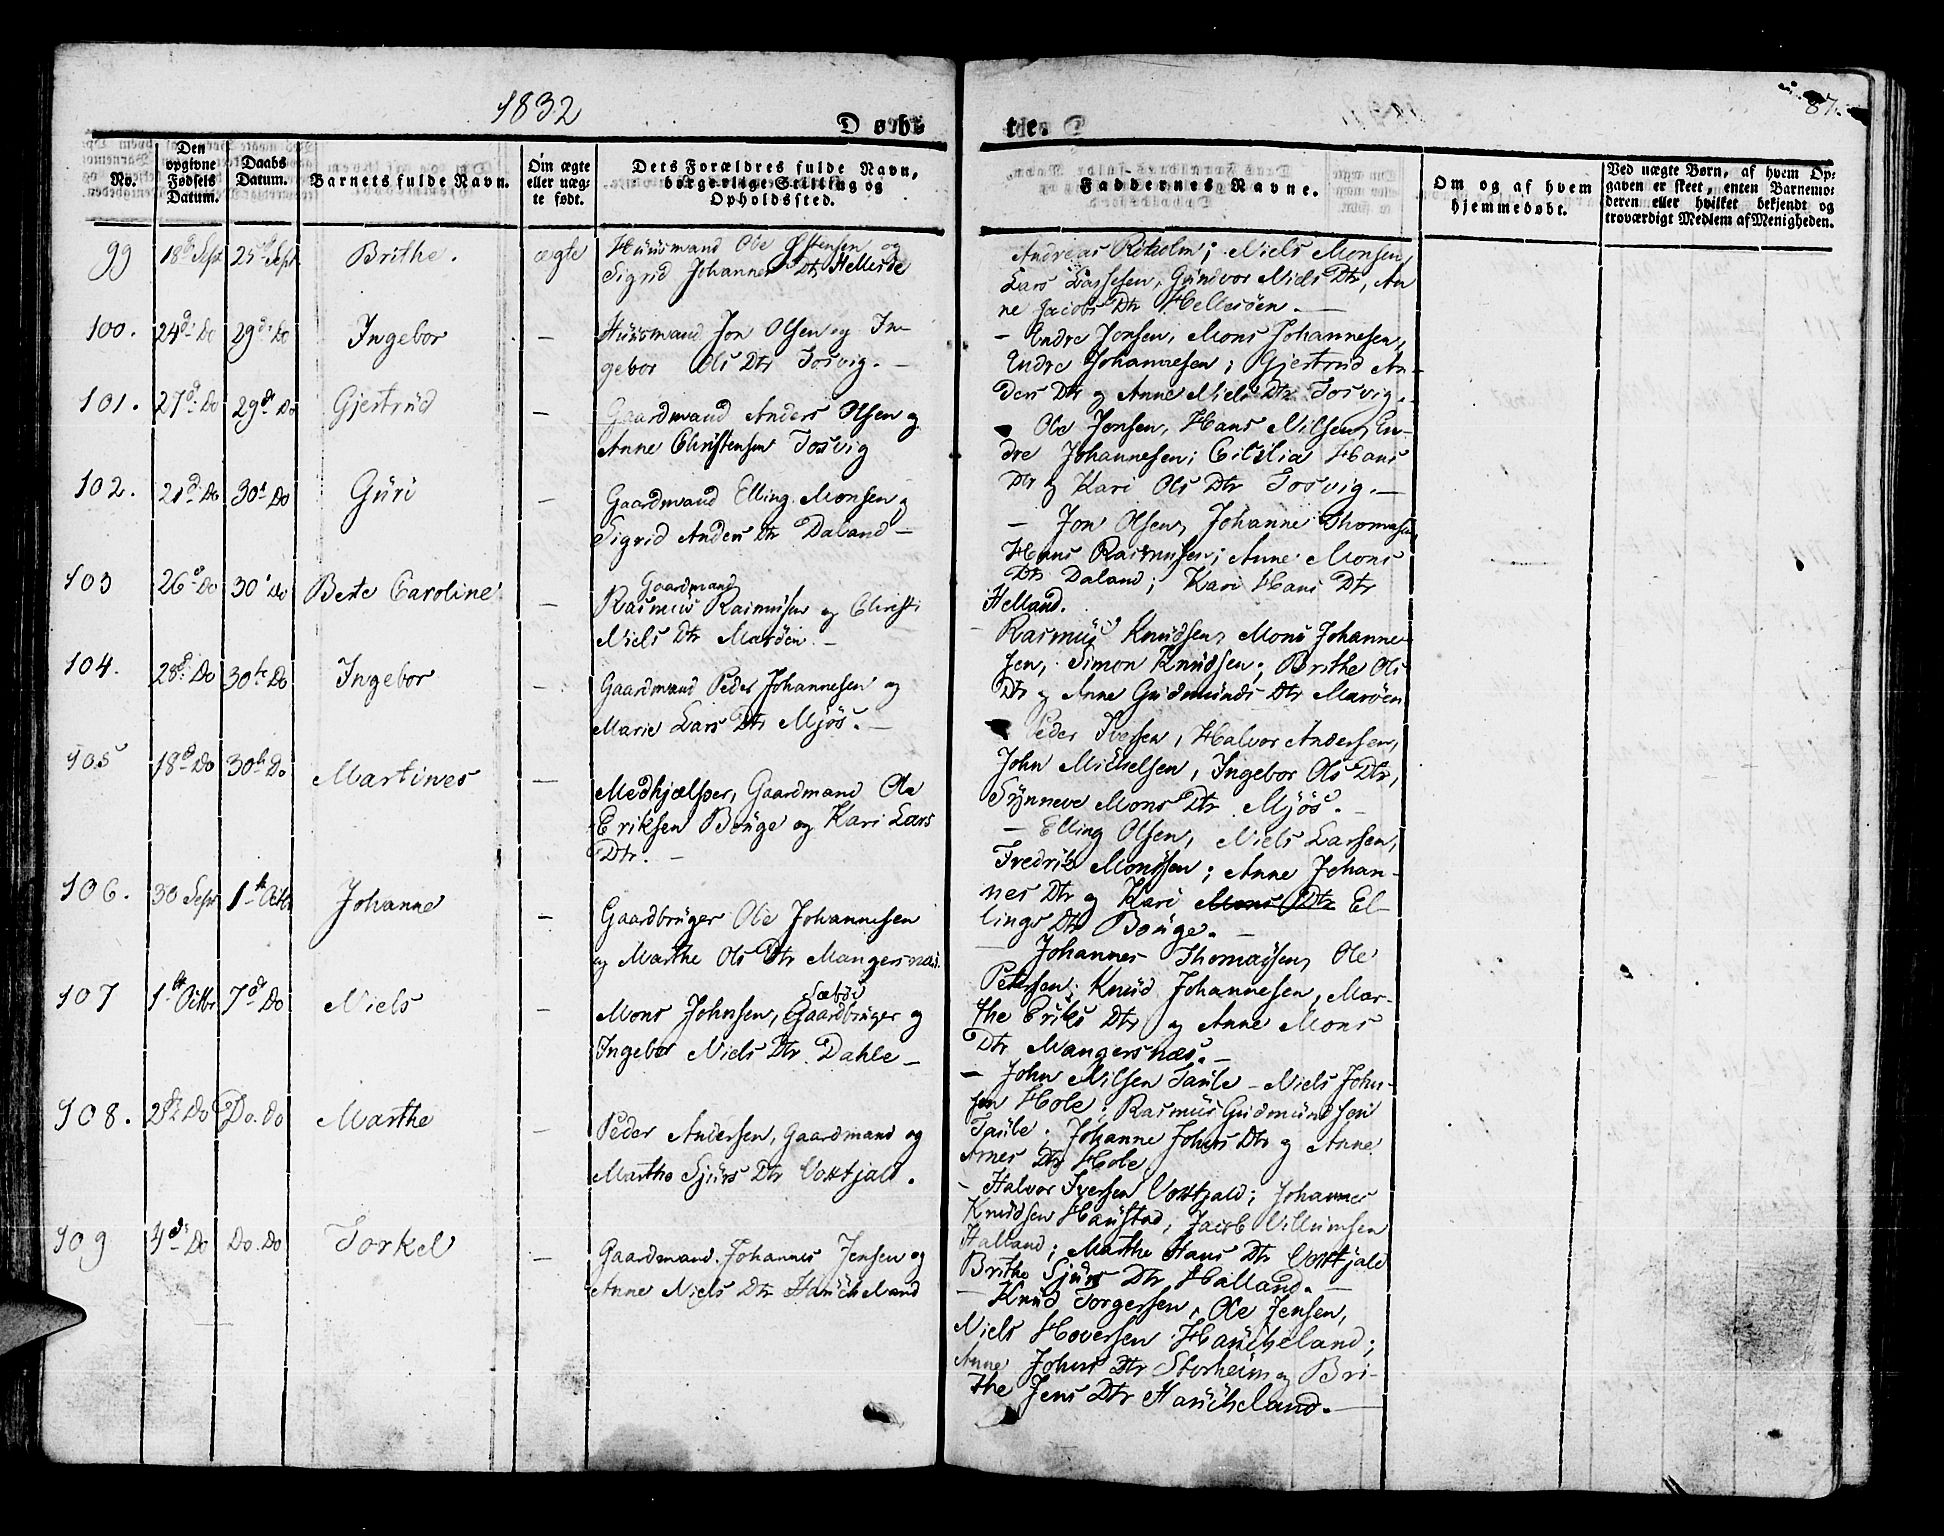 1832
Døbte.
87.
No.
Den opgivne Fødsels Datum.
Daabs Datum.
Barnets fulde Navn.
Om ægte eller uægte født.
Dets Forældres fulde Navn, borgerlige Stilling og Opholdssted.
Faddernes Navne.
Om og af hvem hjemmedøbt.
Ved uægte Børn, af hvem Opgaven er skeet, enten Barnemoderen eller hvilket bekjendt og troværdigt Medlem af Menigheden.
99 18de Sept 25de Sept Brithe. ægte
Huusmand Ole Østensen og
Sigrid Johannes Dtr Hellesöe
Andreas Roholm; Niels Monsen,
Lars Lassesen, Gundvor Niels Dtr, An
ne Jacobs Dtr Hellesöen. —
100. 24de Do 29de Do Ingebor —
Huusmand Jon Olsen og In-
gebor Ols Dtr Tosvig. —
— Endre Jonsen, Mons Johannesen,
Endre Johannesen; Gjertrud An-
ders Dtr og Anne Niels Dtr Tosvig.
101. 27de Do 29de Do Gjertrud —
Gaardmand Anders Olsen og
Anne Christensen Tosvig
Ole Jonsen, Hans Nilsen, En-
dre Johannesen; Cicilia Hans
Dtr og Kari Ols Dtr Tosvig. —
102. 21de Do 30te Do Guri —
Gaardmand Elling Monsen og
Sigrid Anders Dtr Daland —
— Jon Olsen, Johanne Thomesen
Hans Rasmusen; Anne Mons
Dtr Daland; Kari Hans Dtr
Helland.
103 26de Do 30te Do Berte Caroline —
Gaardmand
Rasmus Rasmusen og Christi
Niels Dtr Maröen —
— Rasmus Knudsen, Mons Johanne-
sen, Simon Knudsen; Brithe Ols
Dtr og Anne Gudmunds Dtr Maröen
104. 28de Do 30te Do Ingebor —
Gaardmand Peder Johannesen og
Marie Lars Dtr Mjös. —
Peder Iversen, Halvor Andersen,
John Mickelsen, Ingebor Ols Dtr,
Synneve Mons Dtr Mjös. —
105 18de Do 30te Do Martines —
Medhjælper, Gaardmand Ole
Eriksen Bouge og Kari Lars
Dtr. —
— Elling Olsen, Niels Larsen,
Fredrik Monssen; Anne Johan-
nes Dtr og Kari Mons Dtr El-
lings Dtr Bouge. —
106. 30 Sept 1te Octbr Johanne —
Gaardbruger Ole Johannesen
og Marthe Ols Dtr Mangersnæs.
— Johannes Thomassen, Ole
Petersen; Knud Johannesen, Mar-
the Eriks Dtr og Anne Mons
Dtr Mangersnæs. —
107 1te Octbr 7de Do Niels —
Sæböe
Mons Johnsen, Gaardbruger og
Ingebor Niels Dtr Dahle —
— John Nilsen Taule — Niels John-
sen Hole; Rasmus Gudmundsen
Taule. Johanne Johns Dtr og Anne
Arnes Dtr Hole
108. 2de Do Do. Do Marthe —
Peder Andersen, Gaardmand og
Marthe Sjurs Dtr
— Halvor Iversen Johannes
Knudsen Haustad, Jacob Villumsen
Halland; Marthe Hans Dtr
Brithe Sjurs Dtr Halland. —
109 4de Do Do. Do Torkel —
Gaardmand Johannes Jensen og
Anne Niels Dtr Haukeland
— Knud Torgersen, Ole Jensen,
Niels Hoversen Haukeland;
Anne Johns Dtr Storheim og Bri-
the Jens Dtr Haukeland. —